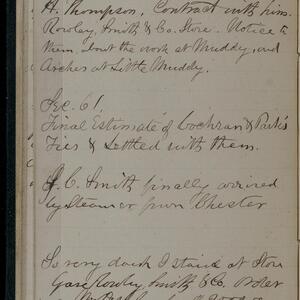 H. Thompson, Contract with him.
Rowley, Smith & Co. Store. Notice to
them about the work at Muddy, and
Arches at Little Muddy.
Sec. 61,
Final Estimate of Cochran & Parks
Ties & Settled with them.
J. C. Smith finally arrived
by Steamer from Chester
Is very dark I stand at Store
Gave Rowley Smith & Co. order